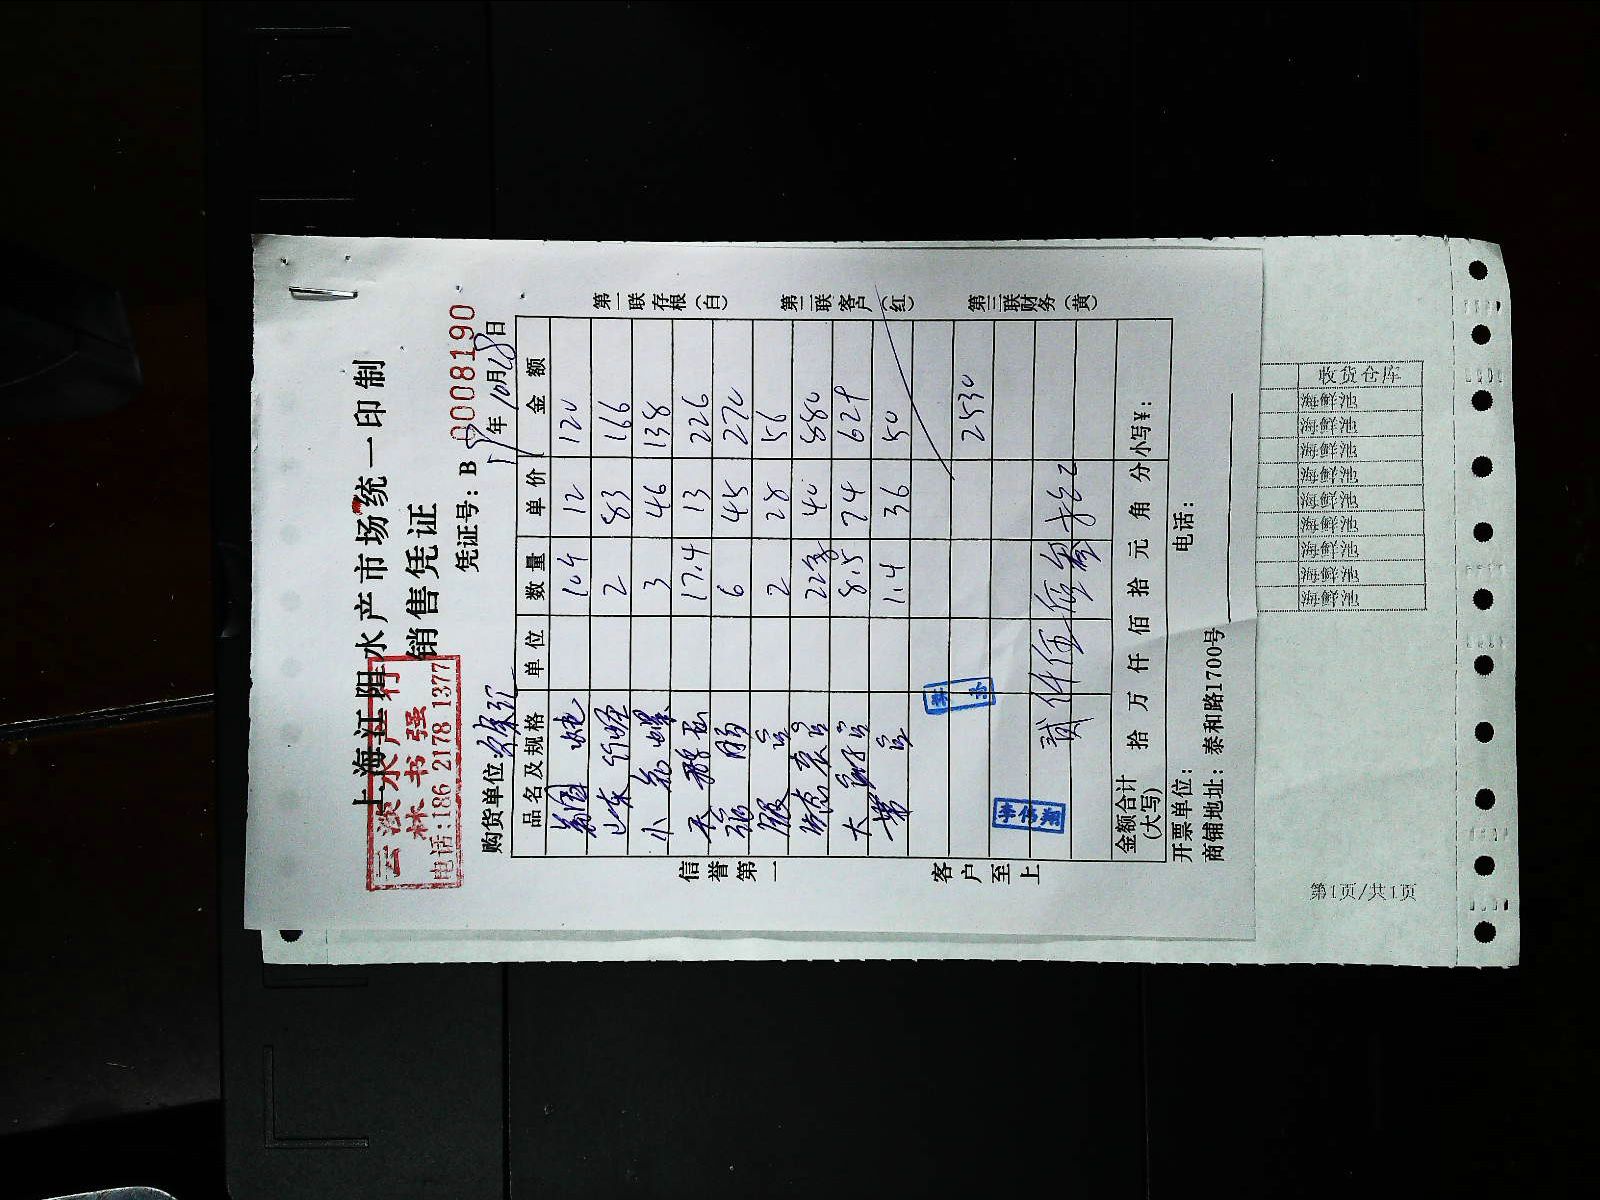 上海江阳水产市场统一印制
销售凭证
云淡水产行
林书强
电话:186 2178 1377
凭证号: B 0008190
购货单位:
年10月28日
品名及规格 单位 数量 单价 金额
10.4 12 120
山东 2 83 166
小花螺 3 46 138
17.4 13 226
6 45 270
2 28 56
22 40 880
大 8.5 74 629
1.4 36 50
2530
李伟翔
贰仟伍佰叁拾元
金额合计(大写) 拾 万 仟 佰 拾 元 角 分 小写¥:
开票单位: 电话:
商铺地址: 泰和路1700号
信誉第一 客户至上
第一联存根(白)
第二联客户(红)
第三联财务(黄)
收货仓库
海鲜池
海鲜池
海鲜池
海鲜池
海鲜池
海鲜池
海鲜池
海鲜池
海鲜池
第1页/共1页